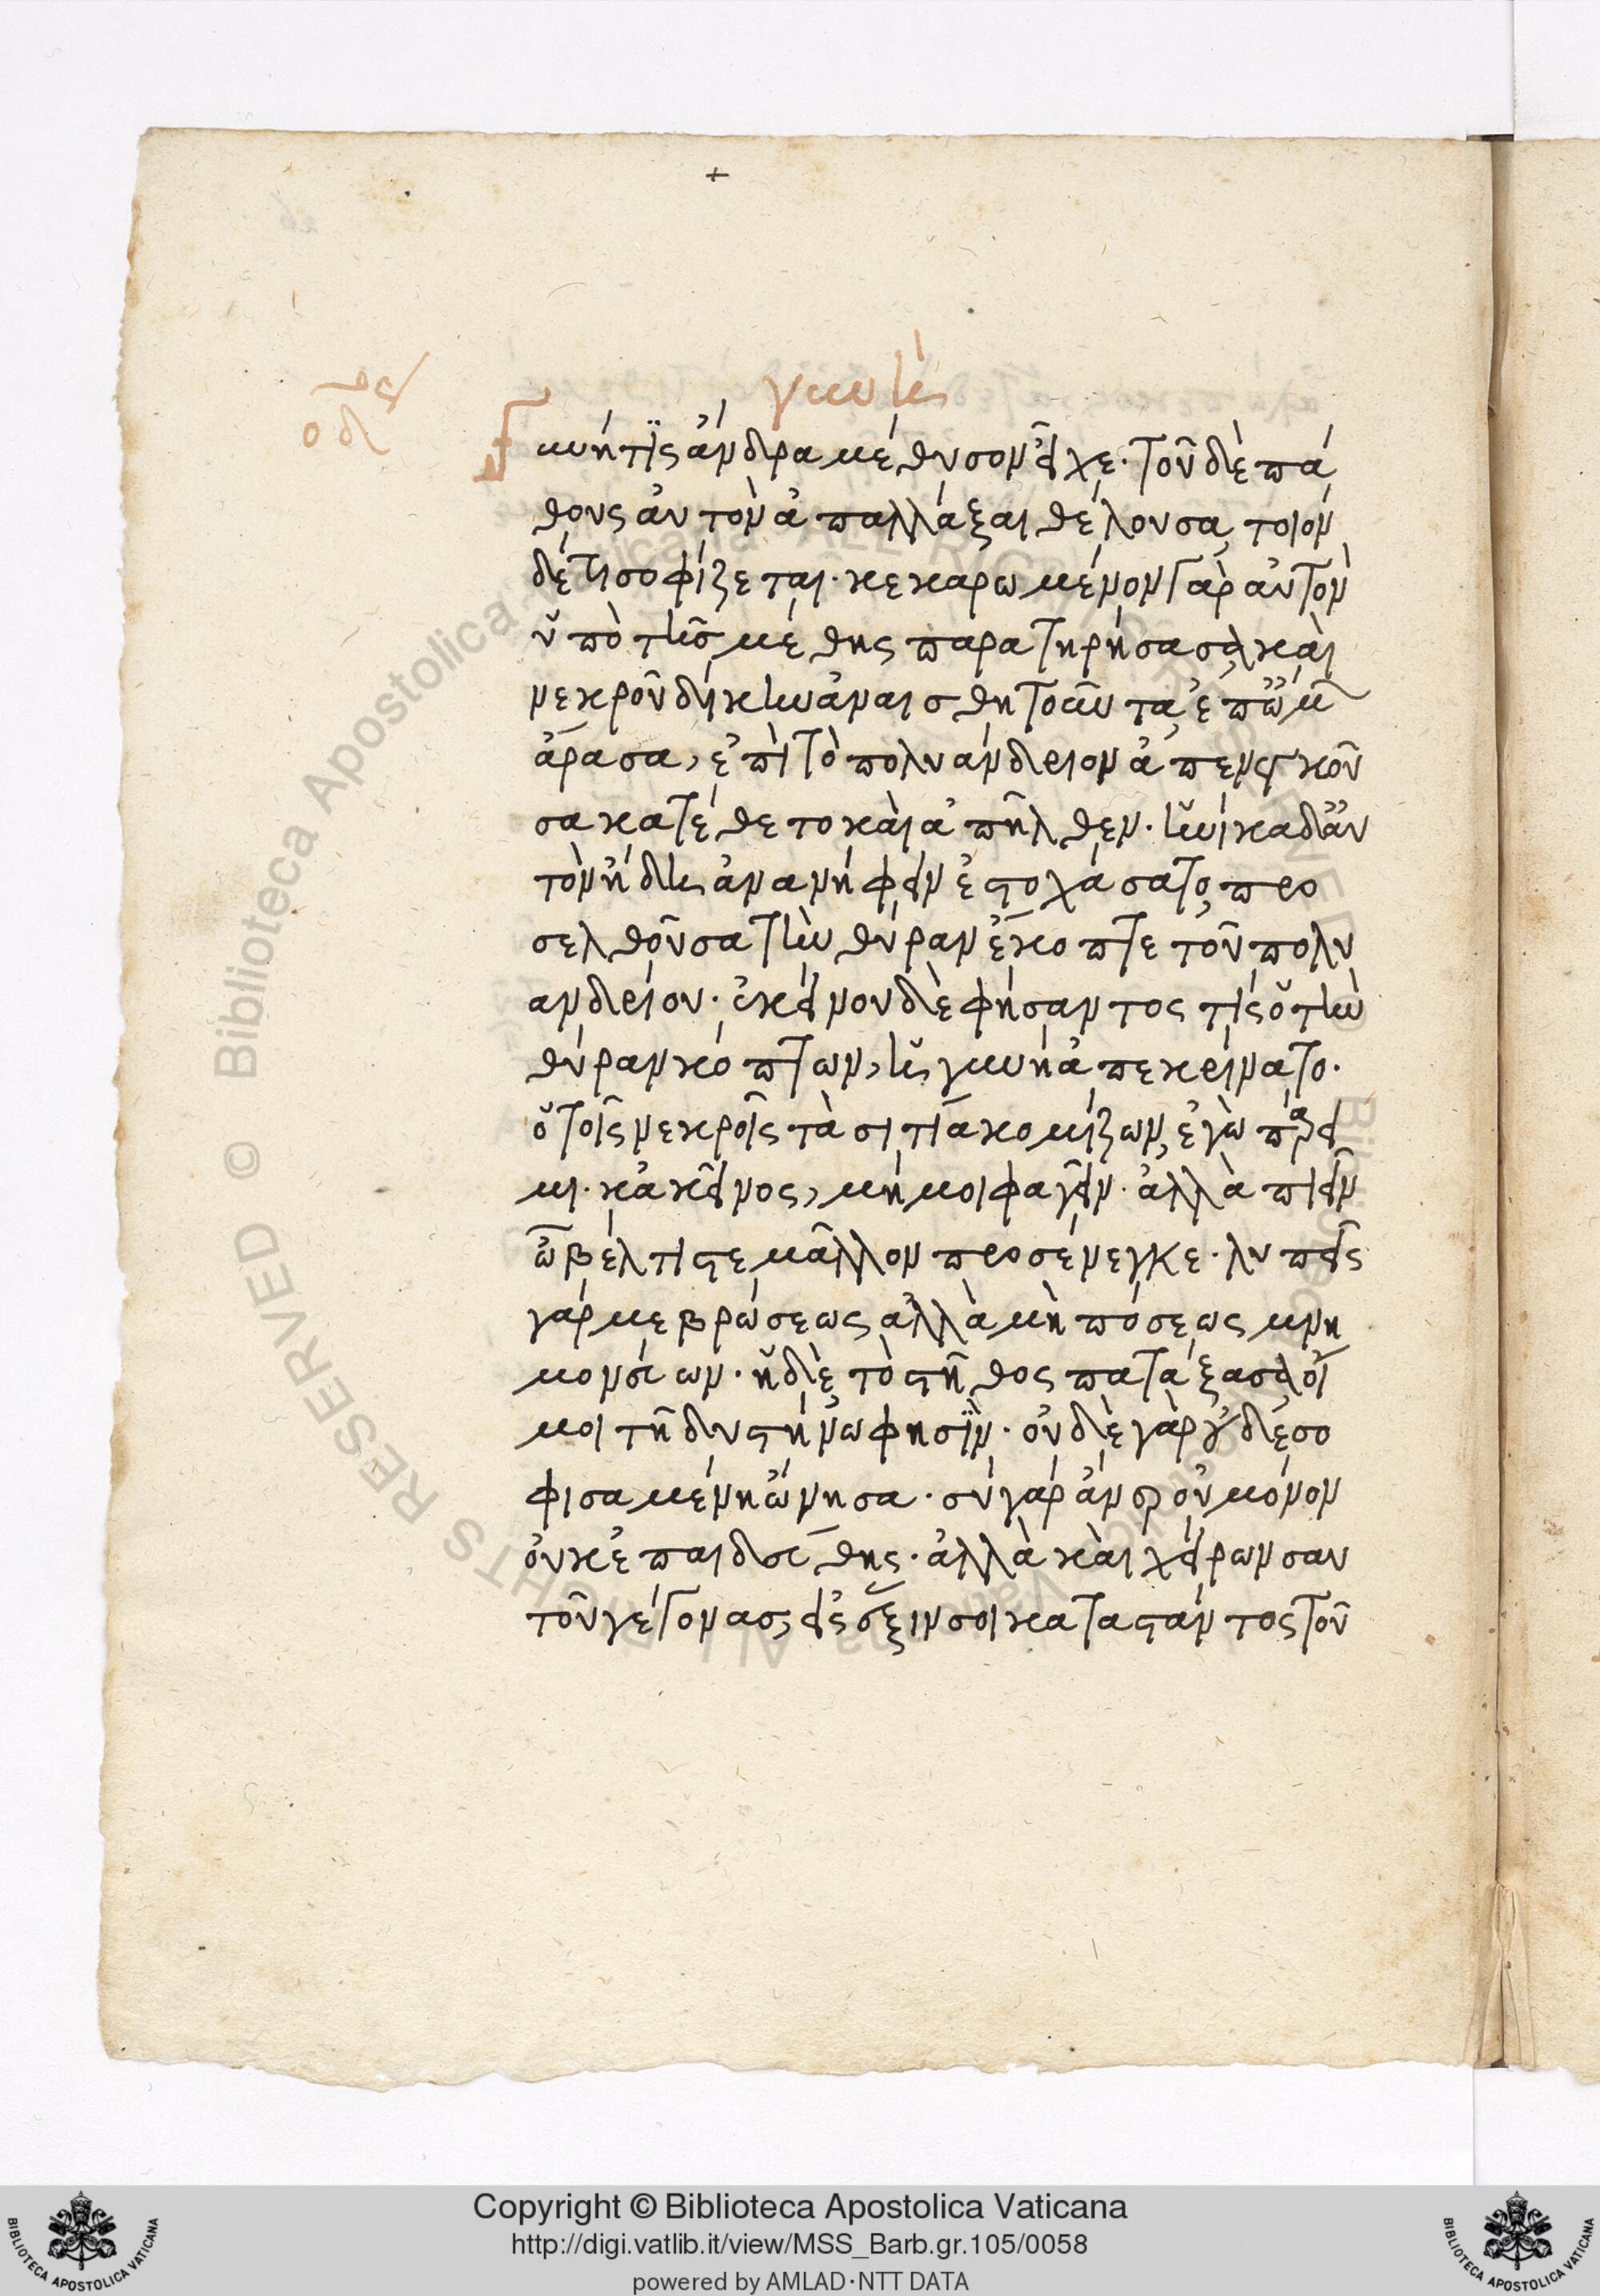 +
γυνή
Γυνή τϊς ἄνδρα μέθυσον εἶχε· τοῦ δὲ πά
θους αὐτὸν ἀπαλλάξαι θέλουσα, τοιόν
δέ τι σοφίζεται· κεκαρωμένον γὰρ αὐτὸν
ὑπὸ τῆς μέθης παρατηρήσασα, καὶ
νεκροῦ δίκην ἀναισθητοῦντα, ἐπ' ὤμων
ἄρασα, ἐπὶ τὸ πολυάνδριον ἀπενεγκοῦ
σα κατέθετο καὶ ἀπῆλθεν. ἡνίκα δ' αὐ
τὸν ἤδη ἀνανήφειν ἐστοχάσατο, προ
σελθοῦσα τὴν θύραν ἔκοπτε τοῦ πολυ
ανδρίου. ἐκείνου δὲ φήσαντος τίς ὁ τὴν
θύραν κόπτων, ἡ γυνὴ ἀπεκρίνατο.
ὁ τοῖς νεκροῖς τὰ σιτία κομίζων, ἐγὼ πάρει
μι. κἀκεῖνος, μή μοι φαγεῖν. ἀλλὰ πιεῖν
ὦ βέλτιστε μᾶλλον προσένεγκε. λυπεῖς
γάρ με βρώσεως ἀλλὰ μὴ πόσεως μνη
μονεύων. ἡ δὲ τὸ στῆθος πατάξασα, οἴ
μοι τῇ δυστήνω φησϊν. οὐδὲ γὰρ οὐδὲ σο
φισαμένη ὤνησα. σὺ γάρ ἄνερ οὐ μόνον
οὐκ ἐπαιδεύθης. ἀλλὰ καὶ χείρων σαυ
τοῦ γέγονας, εἰς ἕξιν σοι καταστάντος τοῦ
Copyright © Biblioteca Apostolica Vaticana
http://digi.vatlib.it/view/MSS_Barb.gr.105/0058
powered by AMLAD·NTT DATA